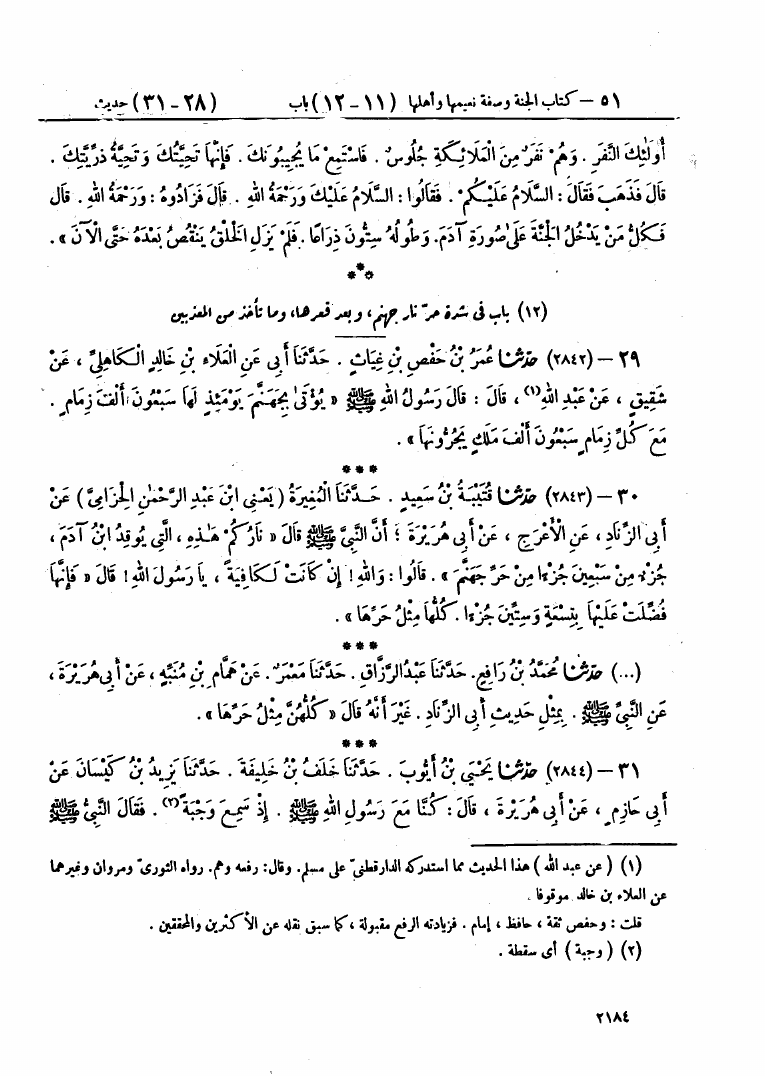 ٥١ - كتاب الجنة وصفة نعيمها وأهلها (١١ - ١٢) باب (٢٨ - ٣١) حديث
أُولَئِكَ النَّفَرِ . وَهُمْ نَفَرٌ مِنَ الْمَلَائِكَةِ جُلُوسٌ . فَاسْتَمِعْ مَا يُجِيبُونَكَ . فَإِنَّهَا تَحِيَّتُكَ وَتَحِيَّةُ ذُرِّيَّتِكَ .
قَالَ فَذَهَبَ فَقَالَ : السَّلَامُ عَلَيْكُمْ . فَقَالُوا : السَّلَامُ عَلَيْكَ وَرَحْمَةُ اللهِ . قَالَ فَزَادُوهُ : وَرَحْمَةُ اللهِ . قَالَ
فَكُلُّ مَنْ يَدْخُلُ الْجَنَّةَ عَلَى صُورَةِ آدَمَ . وَطُولُهُ سِتُّونَ ذِرَاعًا . فَلَمْ يَزَلِ الْخَلْقُ يَنْقُصُ بَعْدَهُ حَتَّى الْآنَ » .
***
(١٢) باب فى شدة حرّ نار جهنم ، وبعد قعرها ، وما تأخذ من المعذبين
٢٩ - (٢٨٤٢) حَدَّثَنَا عُمَرُ بْنُ حَفْصِ بْنِ غِيَاثٍ . حَدَّثَنَا أَبِى عَنِ الْعَلَاءِ بْنِ خَالِدٍ الْكَاهِلِىِّ ، عَنْ
شَقِيقٍ ، عَنْ عَبْدِ اللهِ(١) ، قَالَ : قَالَ رَسُولُ اللهِ ﷺ « يُؤْتَى بِجَهَنَّمَ يَوْمَئِذٍ لَهَا سَبْعُونَ أَلْفَ زِمَامٍ .
مَعَ كُلِّ زِمَامٍ سَبْعُونَ أَلْفَ مَلَكٍ يَجُرُّونَهَا » .
***
٣٠ - (٢٨٤٣) حَدَّثَنَا قُتَيْبَةُ بْنُ سَعِيدٍ . حَدَّثَنَا الْمُغِيرَةُ (يَعْنِى ابْنَ عَبْدِ الرَّحْمٰنِ الْحِزَامِىَّ) عَنْ
أَبِى الزِّنَادِ ، عَنِ الْأَعْرَجِ ، عَنْ أَبِى هُرَيْرَةَ ؛ أَنَّ النَّبِىَّ ﷺ قَالَ « نَارُكُمْ هَٰذِهِ ، الَّتِى يُوقِدُ ابْنُ آدَمَ ،
جُزْءٌ مِنْ سَبْعِينَ جُزْءًا مِنْ حَرِّ جَهَنَّمَ » . قَالُوا : وَاللهِ ! إِنْ كَانَتْ لَكَافِيَةً ، يَا رَسُولَ اللهِ ! قَالَ « فَإِنَّهَا
فُضِّلَتْ عَلَيْهَا بِتِسْعَةٍ وَسِتِّينَ جُزْءًا . كُلُّهَا مِثْلُ حَرِّهَا » .
***
(...) حَدَّثَنَا مُحَمَّدُ بْنُ رَافِعٍ . حَدَّثَنَا عَبْدُ الرَّزَّاقِ . حَدَّثَنَا مَعْمَرٌ . عَنْ هَمَّامِ بْنِ مُنَبِّهٍ ، عَنْ أَبِى هُرَيْرَةَ ،
عَنِ النَّبِىِّ ﷺ . بِمِثْلِ حَدِيثِ أَبِى الزِّنَادِ . غَيْرَ أَنَّهُ قَالَ « كُلُّهُنَّ مِثْلُ حَرِّهَا » .
***
٣١ - (٢٨٤٤) حَدَّثَنَا يَحْيَى بْنُ أَيُّوبَ . حَدَّثَنَا خَلَفُ بْنُ خَلِيفَةَ . حَدَّثَنَا يَزِيدُ بْنُ كَيْسَانَ عَنْ
أَبِى حَازِمٍ ، عَنْ أَبِى هُرَيْرَةَ ، قَالَ : كُنَّا مَعَ رَسُولِ اللهِ ﷺ . إِذْ سَمِعَ وَجْبَةً(٢) . فَقَالَ النَّبِىُّ ﷺ
(١) (عن عبد الله) هذا الحديث مما استدركه الدارقطنىّ على مسلم. وقال: رفعه وهم. رواه الثورىّ ومروان وغيرهما
عن العلاء بن خالد موقوفا .
قلت : وحفص ثقة ، حافظ ، إمام . فزيادته الرفع مقبولة ، كما سبق نقله عن الأكثرين والمحققين .
(٢) (وجبة) أى سقطة .
٢١٨٤